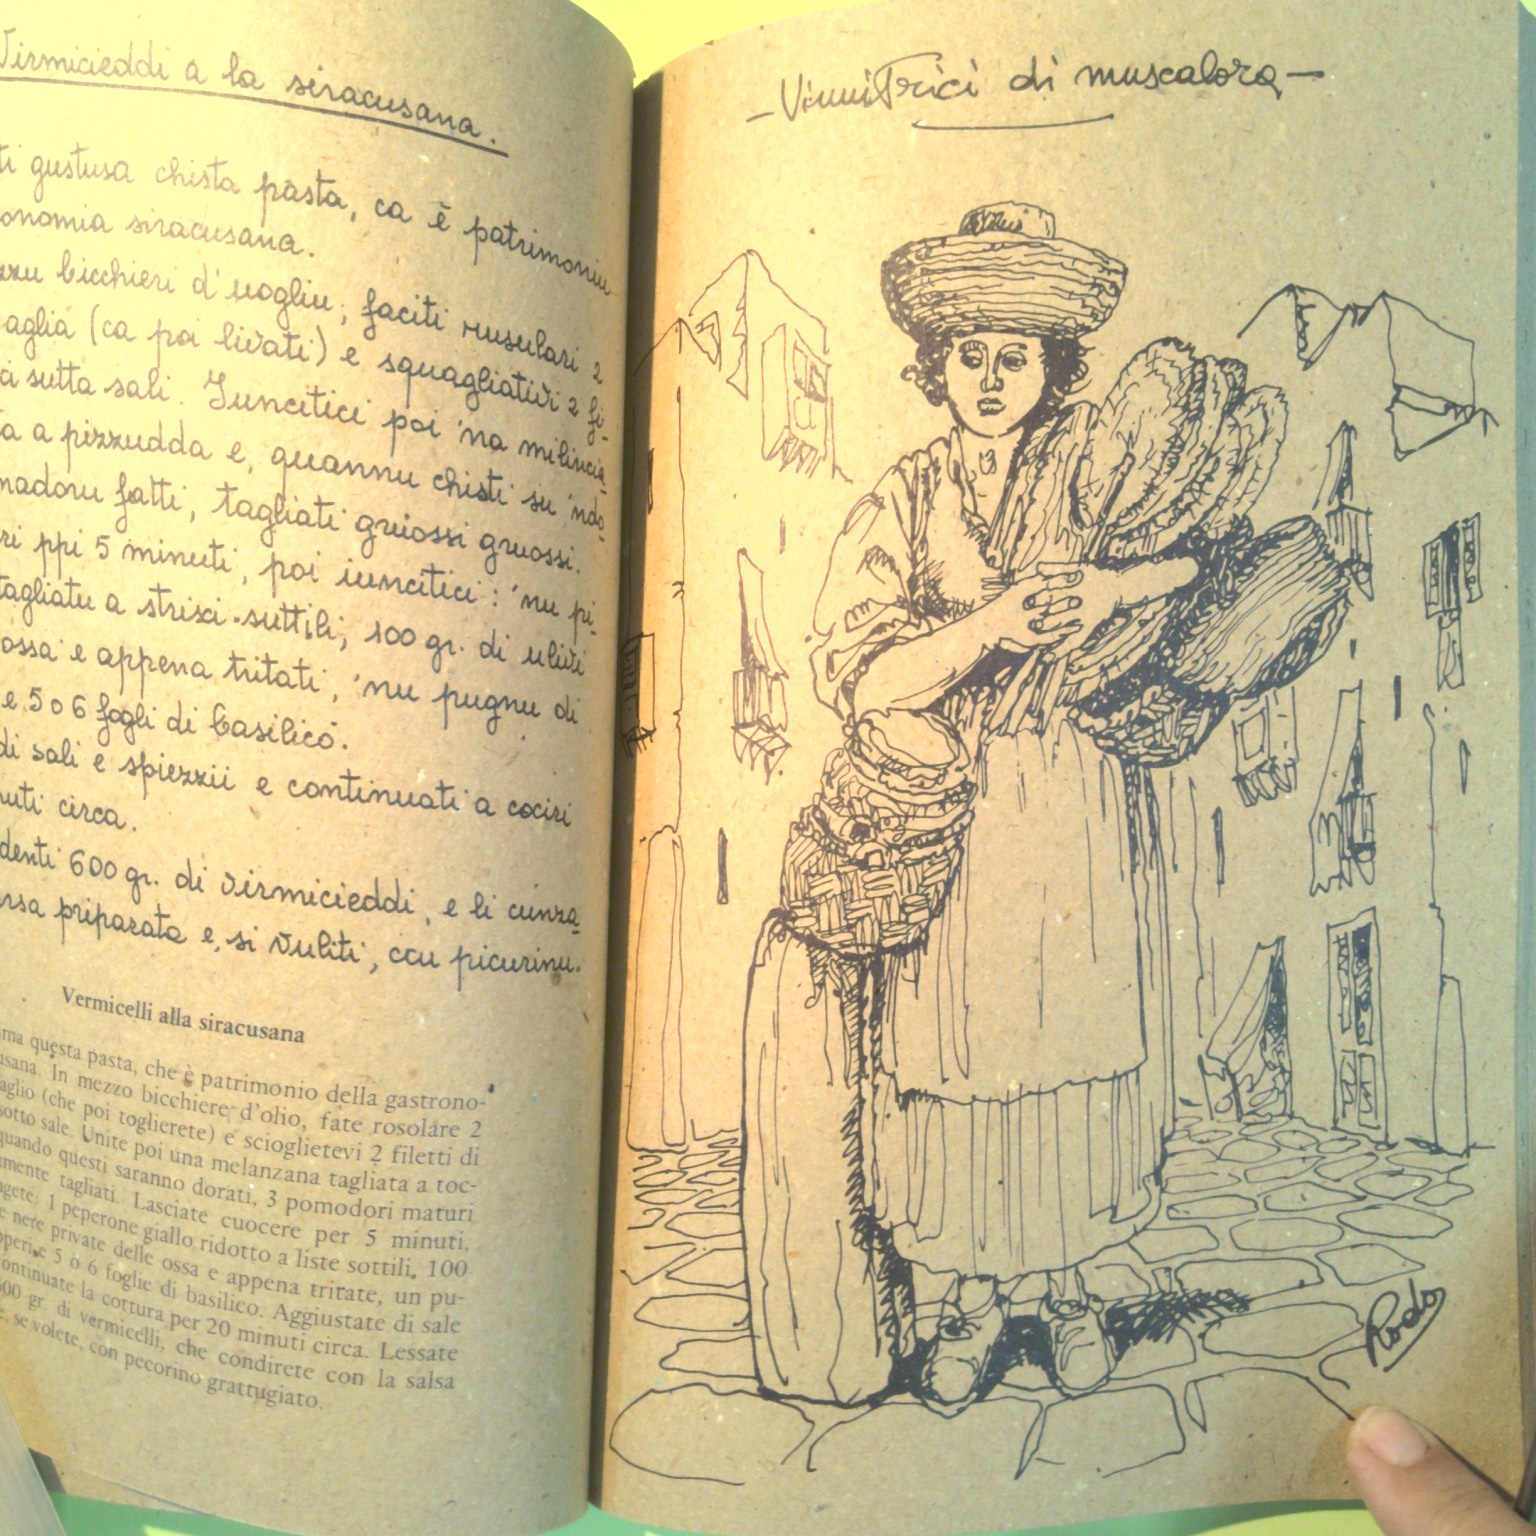 Virmicieddi a la siracusana.
ti gustusa chista pasta, ca è patrimoniu
onomia siracusana.
zzu bicchieri d'uogliu, faciti rusulari 2
aglia (ca poi livati) e squagliativi 2 fi-
sutta sali. Iuncitici poi 'na milincia-
ta a pizzudda e, quannu chisti su 'ndo-
madoru fatti, tagliati gruossi gruossi.
ri ppi 5 minuti, poi iuncitici: 'nu pi-
tagliatu a strisci suttili, 100 gr. di ulivi
ossa e appena tritati, 'nu pugnu di
e 5 o 6 fogli di basilicò.
di sali e spiezzii e continuati a cociri
nuti circa.
denti 600 gr. di virmicieddi, e li cunza-
arsa priparata e, si vuliti, ccu picurinu.
Vermicelli alla siracusana
ma questa pasta, che è patrimonio della gastrono-
usana. In mezzo bicchiere d'olio, fate rosolare 2
aglio (che poi toglierete) e scioglietevi 2 filetti di
sotto sale. Unite poi una melanzana tagliata a toc-
quando questi saranno dorati, 3 pomodori maturi
amente tagliati. Lasciate cuocere per 5 minuti,
ngete: 1 peperone giallo ridotto a liste sottili, 100
e nere private delle ossa e appena tritate, un pu-
pperi e 5 o 6 foglie di basilico. Aggiustate di sale
ontinuate la cottura per 20 minuti circa. Lessate
600 gr. di vermicelli, che condirete con la salsa
e, se volete, con pecorino grattugiato.
- VinniTrici di muscalora -
Rodo